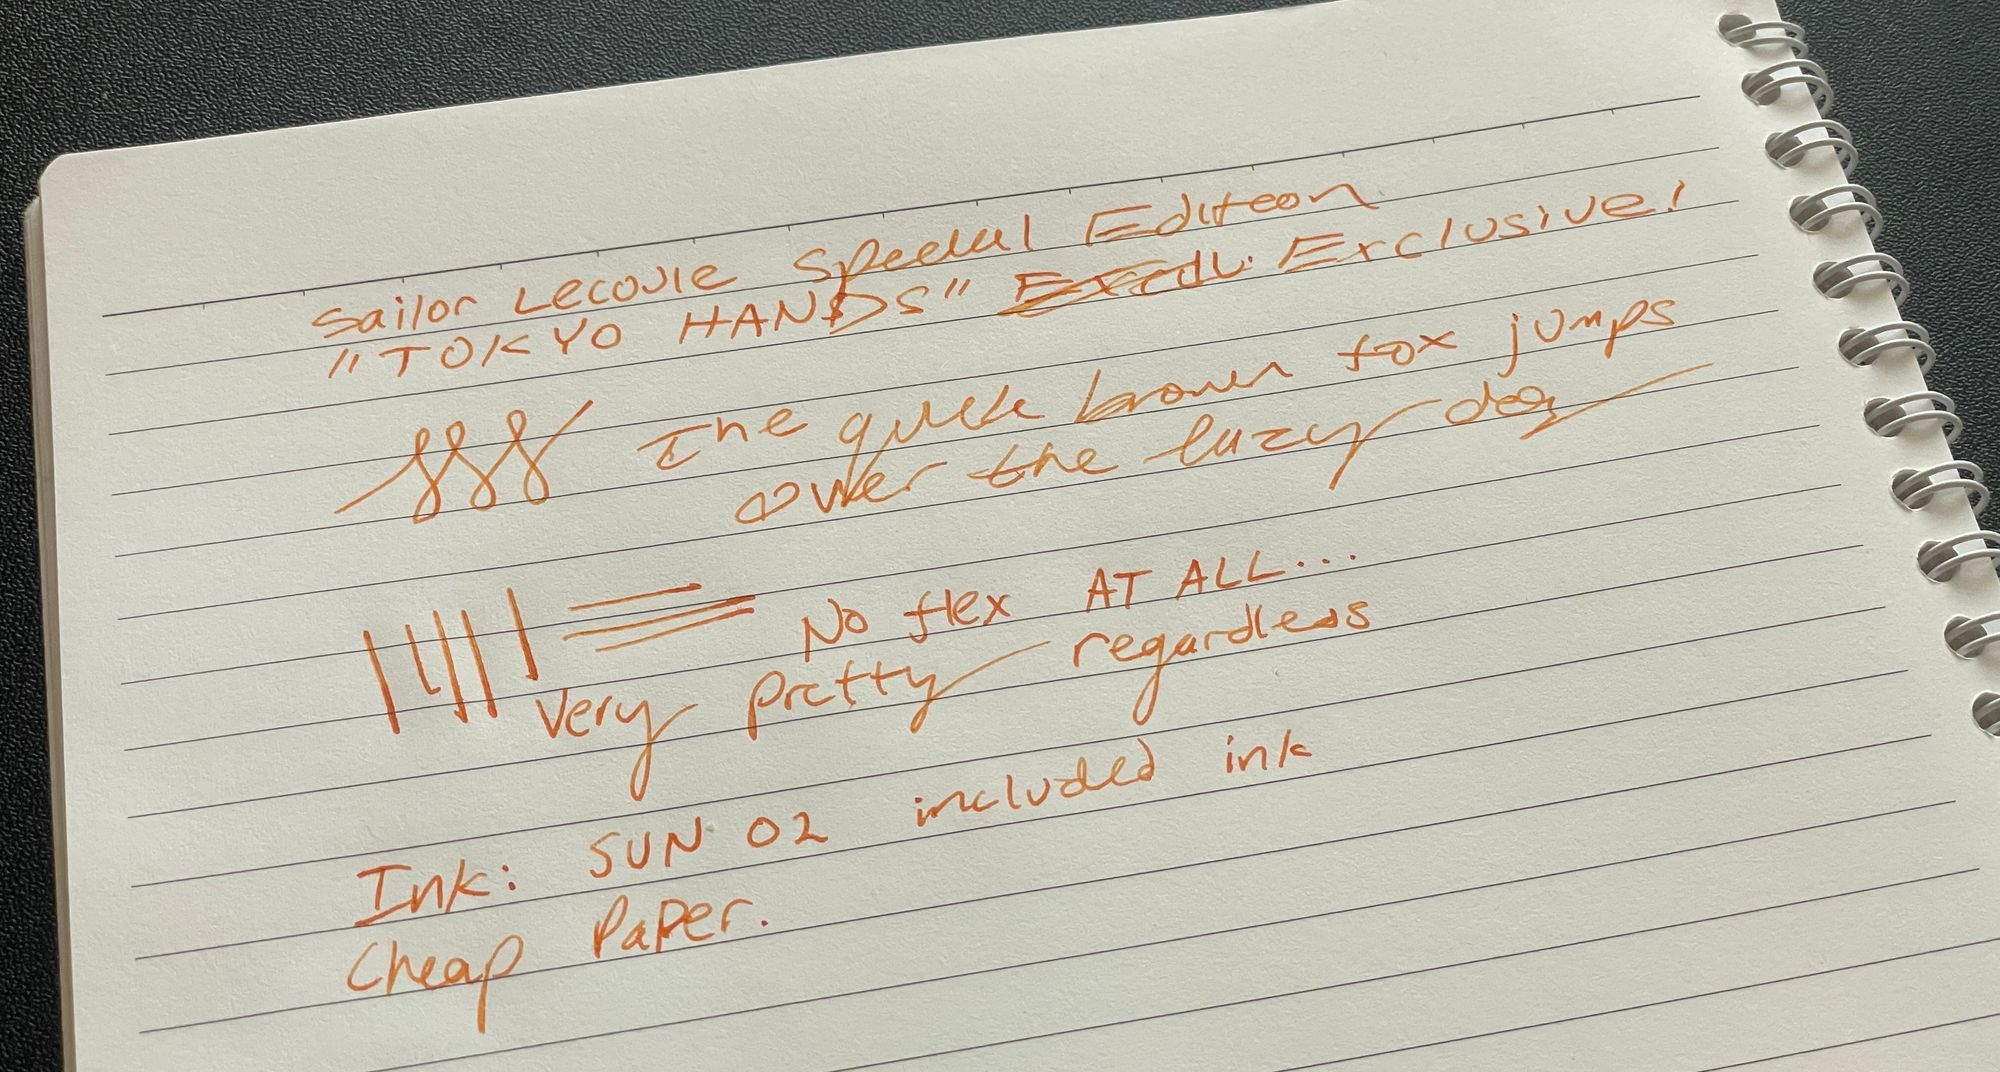 Sailor Lecoule Special Edition
"TOKYO HANDS" Exclusive!
The quick brown fox jumps
over the lazy dog
No flex AT ALL...
Very pretty regardless
Ink: SUN 02 included ink
Cheap Paper.